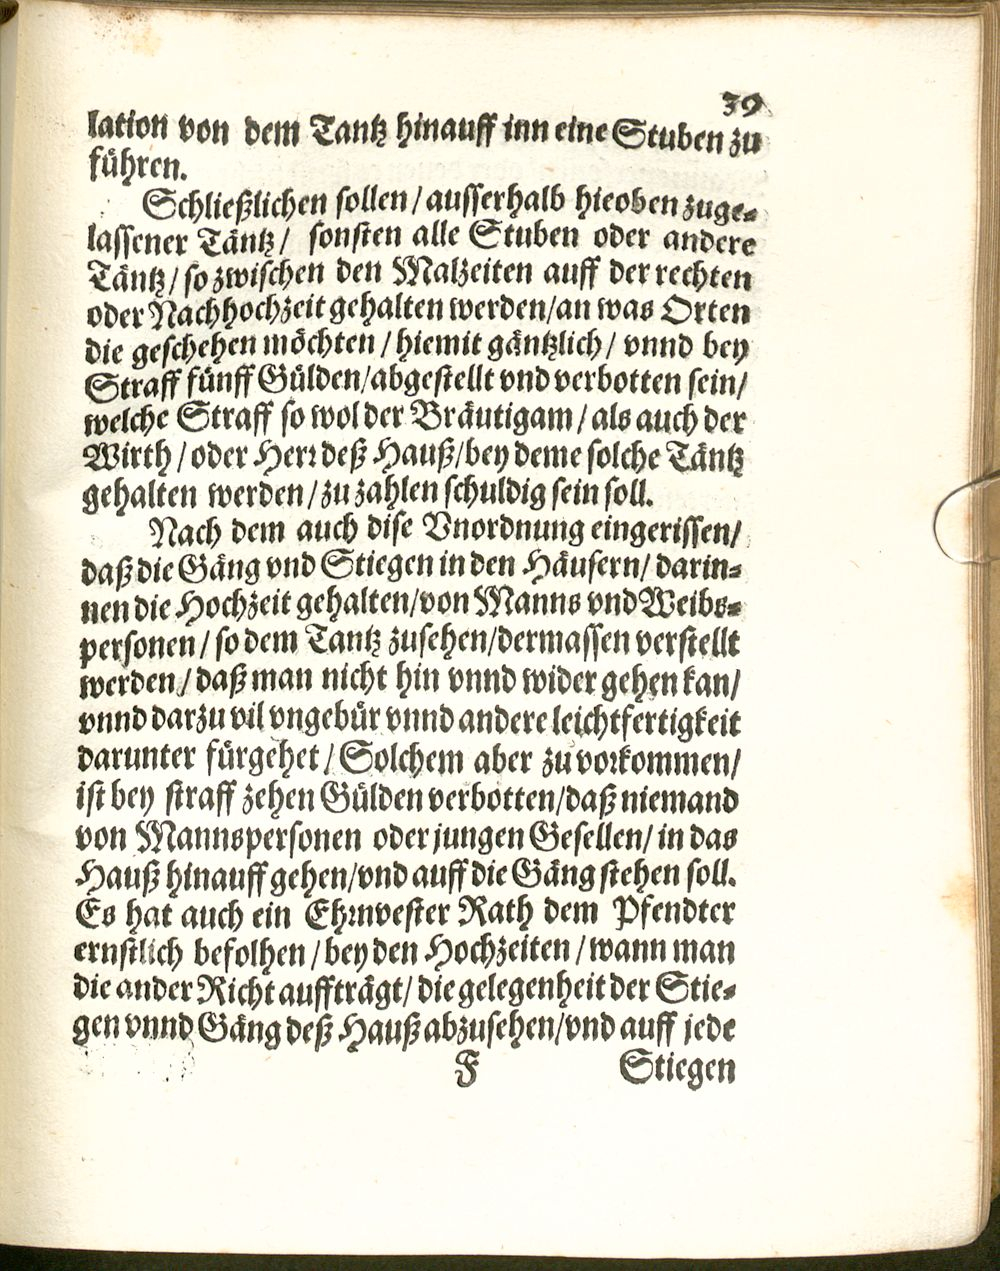 39
lation von dem Tantz hinauff inn eine Stuben zu
führen.
Schließlichen sollen / ausserhalb hieoben zuge-
lassener Täntz / sonsten alle Stuben oder andere
Täntz / so zwischen den Malzeiten auff der rechten
oder Nachhochzeit gehalten werden / an was Orten
die geschehen möchten / hiemit gäntzlich / vnnd bey
Straff fünff Gülden / abgestellt vnd verbotten sein /
welche Straff so wol der Bräutigam / als auch der
Wirth / oder Herr deß Hauß / bey deme solche Täntz
gehalten werden / zu zahlen schuldig sein soll.
Nach dem auch dise Vnordnung eingerissen /
daß die Gäng vnd Stiegen in den Häusern / darin-
nen die Hochzeit gehalten / von Manns vnd Weibs-
personen / so dem Tantz zusehen / dermassen verstellt
werden / daß man nicht hin vnnd wider gehen kan /
vnnd darzu vil vngebür vnnd andere leichtfertigkeit
darunter fürgehet / Solchem aber zu vorkommen /
ist bey straff zehen Gülden verbotten / daß niemand
von Mannspersonen oder jungen Gesellen / in das
Hauß hinauff gehen / vnd auff die Gäng stehen soll.
Es hat auch ein Ehrnvester Rath dem Pfendter
ernstlich befolhen / bey den Hochzeiten / wann man
die ander Richt auffträgt / die gelegenheit der Stie-
gen vnnd Gäng deß Hauß abzusehen / vnd auff jede
F Stiegen